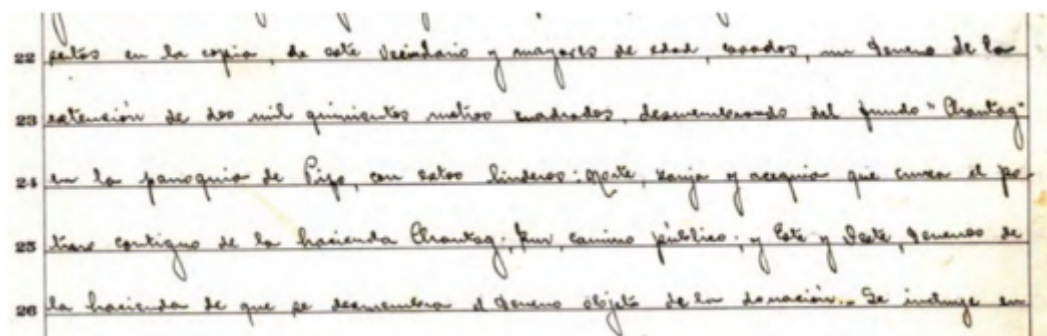 22 en la copia, de este vecindario y mayores de edad, casados, un terreno de la
23 extensión de dos mil quinientos metros cuadrados, desmembrando del fundo "Chantag"
24 en la parroquia de Pifo, con estos linderos: Norte, zanja y acequia que cruza el po-
25 trero contiguo de la hacienda Chantag; Sur, camino público; y Este y Oeste, terrenos de
26 la hacienda de que se desmembra el terreno objeto de la donación.- Se incluye en